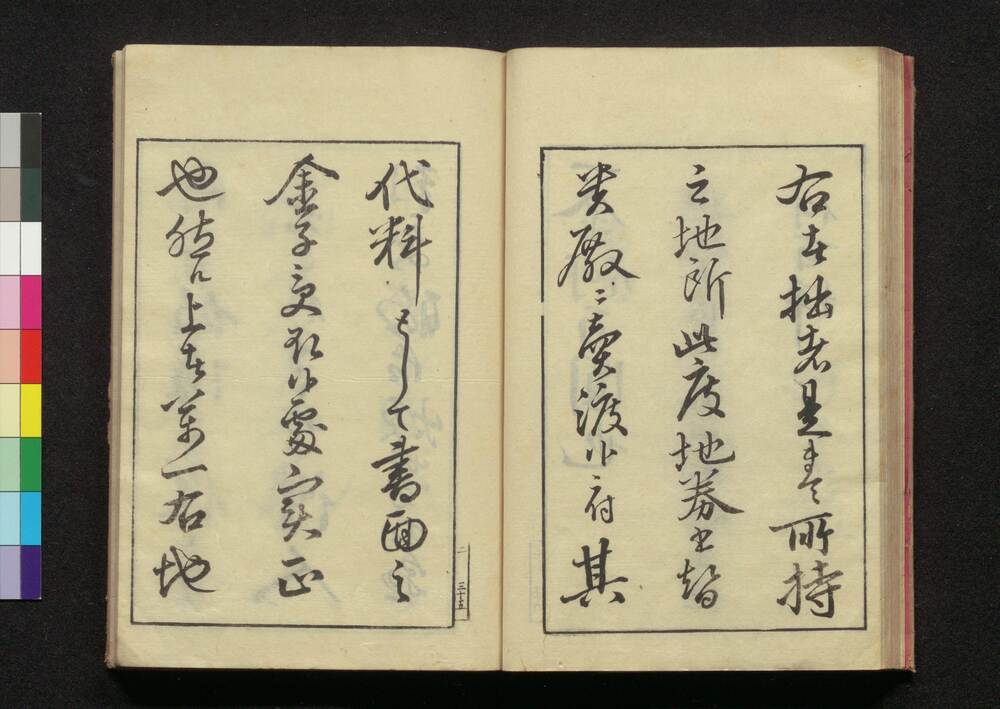 右者拙者是まで所持
之地所此度地券書替
貴殿ニ賣渡候付其
代料として書面之
金子受取候處実正
也然ル上者萬一右地
二
三十五